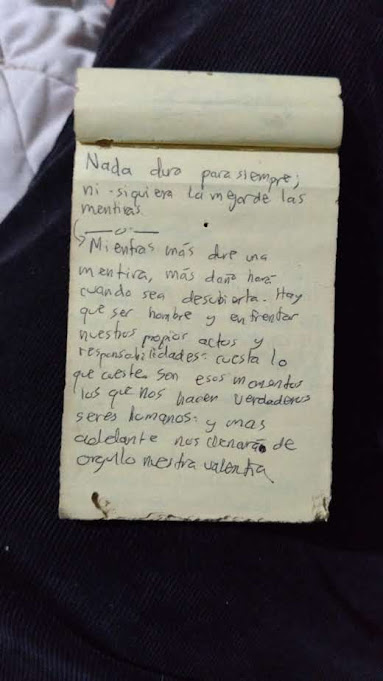 Nada dura para siempre;
ni siquiera la mejor de las
mentiras
—o—
Mientras más dure una
mentira, más daño hará
cuando sea descubierta. Hay
que ser hombre y enfrentar
nuestros propios actos y
responsabilidades: cuesta lo
que cueste. Son esos momentos
los que nos hacen verdaderos
seres humanos: y mas
adelante nos llenará de
orgullo nuestra valentia